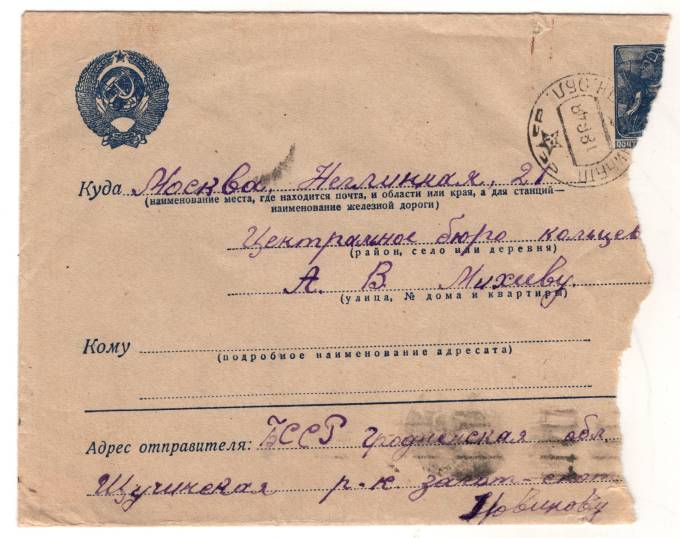 Куда Москва, Неглинная, 21
(наименование места, где находится почта, и области или края, а для станций—
наименование железной дороги)
Центральное бюро кольцев
(район, село или деревня)
А. В. Михиеву.
(улица, № дома и квартиры)
Кому
(подробное наименование адресата)
Адрес отправителя: БССР Гродненская обл.
Щучинская р-к загот-скот